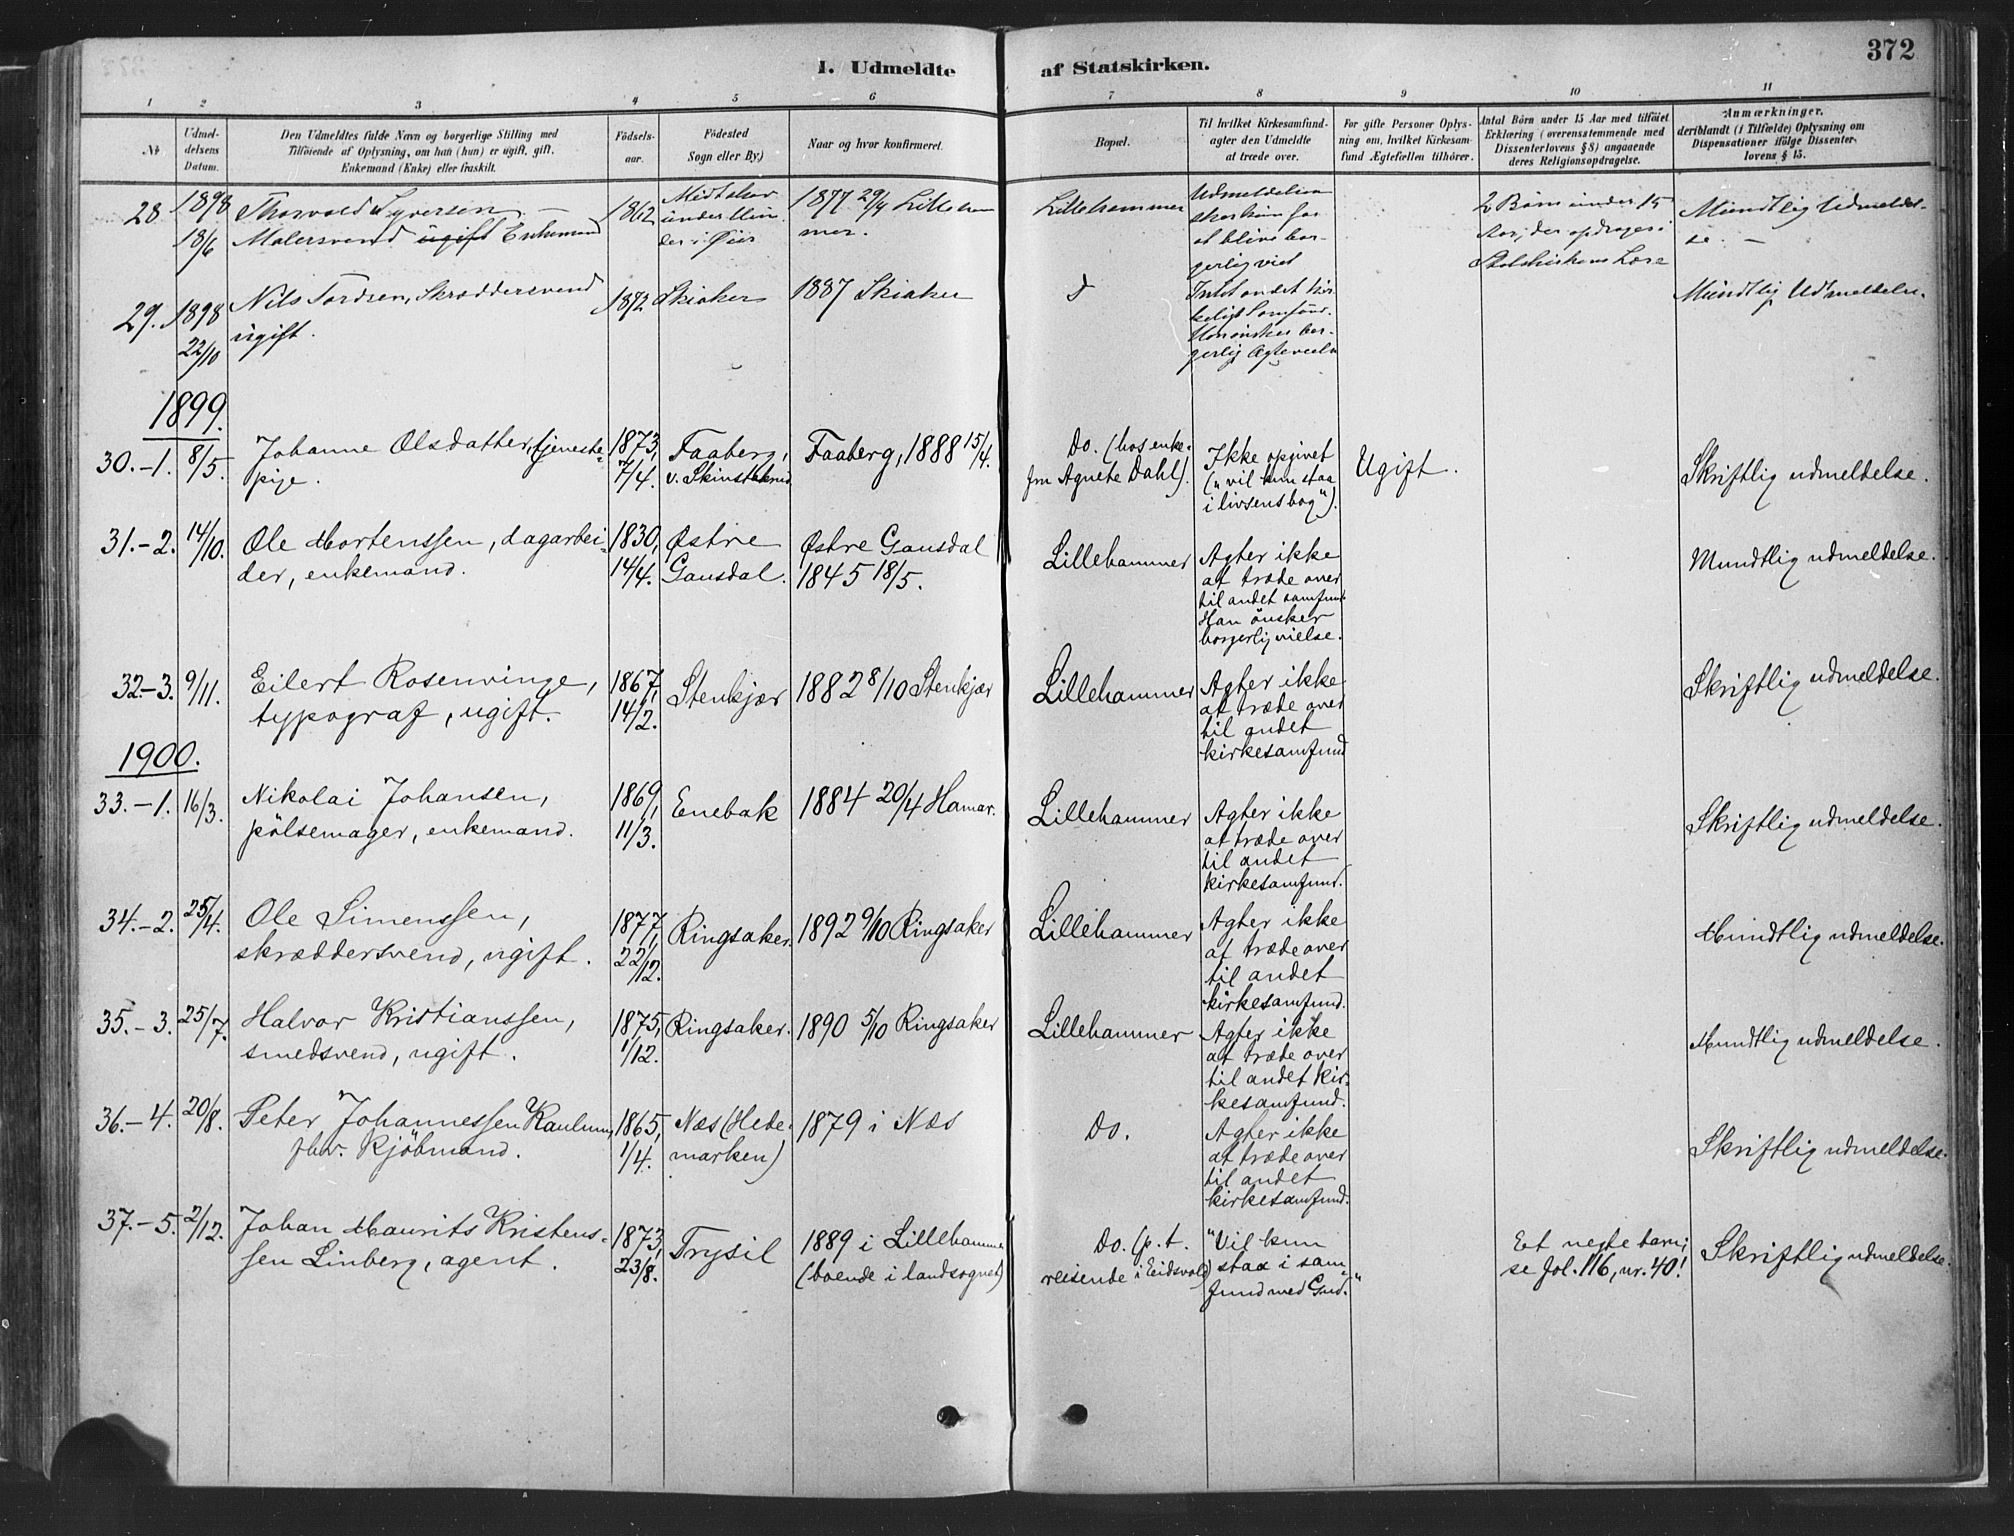 372
I. Udmeldte af Statskirken.
1 2 3 4 5 6 7 8 9 10 11
No.
Udmel-
delsens
Datum.
Den Udmeldtes fulde Navn og borgerlige Stilling med
Tilföiende af Oplysning, om han (hun) er ugift, gift,
Enkemand (Enke) eller fraskilt.
Födsels-
aar.
Födested
Sogn eller By)
Naar og hvor konfirmeret.
Bopæl.
Til hvilket Kirkesamfund
agter den Udmeldte
at træde over.
For gifte Personer Oplys-
ning om, hvilket Kirkesam-
fund Ægtefællen tilhörer.
Antal Börn under 15 Aar med tilföiet
Erklæring (overensstemmende med
Dissenterlovens § 8) angaaende
deres Religionsopdragelse.
Anmærkninger.
deriblandt (i Tilfælde) Oplysning om
Dispensationer ifölge Dissenter-
lovens § 15.
28.
1898
18/6
Thorvald Syversen –
Malersvend ugift Enkemand
1862
under
der i Öier
1877 29/4 Lilleham
mer.
Lillehammer
Udmeldelsen
sker kun for
at blive bor-
gerlig viet
2 Börn under 15
Aar, der opdrages i
Statskirkens Lære
Mundtlig Udmeldel-
se. –
29.
1898
22/10
Nils Tordsen, Skræddersvend
ugift.
1872
Skiaker
1887 Skiaker
Intet andet kir-
keligt Samfund.
Han önsker bor-
gerlig Ægtevielse
Mundtlig Udmeldelse.
1899.
30.–1.
8/5
Johanne Olsdatter, tjeneste-
pige.
1873,
7/4.
Faaberg,
Faaberg, 1888 15/4.
Do. (hos enke-
fru Agnete Dahl).
Ikke opgivet
("vil kun staa
i livsens bog").
Ugift.
Skriftlig udmeldelse.
31.–2.
14/10.
Ole Mortenssen, dagarbei-
der, enkemand.
1830,
14/4.
Østre
Gausdal.
Østre Gausdal
1845 18/5.
Lillehammer
Agter ikke
at træde over
til andet samfund
Han önsker
borgerlig vielse.
Mundtlig udmeldelse.
32–3.
9/11.
Eilert Rosenvinge,
typograf, ugift.
1867,
14/2.
Stenkjær
1882 8/10 Stenkjær
Lillehammer
Agter ikke
at træde over
til andet
kirkesamfund
Skriftlig udmeldelse.
1900.
33.–1.
16/3.
Nikolai Johansen,
pölsemager, enkemand.
1869,
11/3.
Enebak
1884 20/4 Hamar.
Lillehammer
Agter ikke
at træde over
til andet
kirkesamfund.
Skriftlig udmeldelse.
34.–2.
25/4.
Ole Simenssen,
skræddersvend, ugift.
1877,
22/12.
Ringsaker.
1892 9/10 Ringsaker
Lillehammer
Agter ikke
at træde over
til andet
kirkesamfund.
Mundtlig udmeldelse.
35.–3.
25/7.
Halvor Kristianssen,
smedsvend, ugift.
1875,
1/12.
Ringsaker.
1890 5/10 Ringsaker
Lillehammer
Agter ikke
at træde over
til andet kir-
kesamfund.
Mundtlig udmeldelse.
36.–4.
20/8.
Peter Johannessen Kaulum,
fhv. Kjöbmand.
1865,
1/4.
Næs (Hede-
marken)
1879 i Næs
Do.
Agter ikke
at træde over
til andet
kirkesamfund.
Skriftlig udmeldelse.
37.–5.
2/12.
Johan Maurits Kristens-
sen Linberg, agent.
1873,
23/8.
Trysil
1889 i Lillehammer
(boende i landsognet)
Do. (p. t.
reisende i Eidsvold)
"Vil kun
staa i sam-
fund med Gud."
Eet uegte barn;
se fol. 116, nr. 40!
Skriftlig udmeldelse.